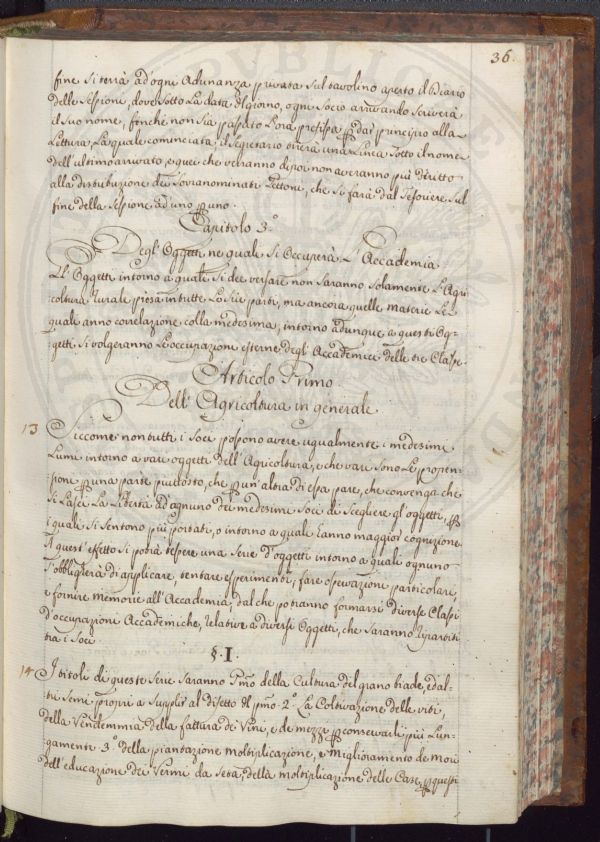 36.
fine si terrà ad ogni Adunanza privata sul tavolino aperto il Diario
delle Sessione, dove sotto La data del giorno, ogni Socio arrivando scriverà
il suo nome, finchè non sia passato L'ora prefissa per dar principio alla
Lettura, La quale cominciata, il Segretario tirerà una Linea sotto il nome
dell'ultimo arrivato, e quei che verranno dipoi non averanno più diritto
alla distribuzione dei sovranominati Gettoni, che si farà dal Tesoriere sul
fine della Sessione ad uno per uno.
Capitolo 3.º
Degl'Oggetti ne quali si Occuperà L'Accademia
Gl'Oggetti intorno a quali si dee versare non saranno solamente L'Agri
coltura Rurale presa in tutte Le sue parti, ma ancora quelle materie Le
quali anno correlazione colla medesima, intorno adunque a questi Og-
getti si volgeranno Le occupazioni esterne degl'Accademici delle tre Classe.
Articolo Primo
Dell'Agricoltura in generale
13 Siccome non tutti i Soci possono avere ugualmente i medesimi
Lumi intorno a vari oggetti dell'Agricoltura, e che vari sono Le propen-
sione per una parte piuttosto, che per un'altra di essa pare, che convenga che
si Lasci La Libertà ad ognuno dei medesimi Soci di scegliere gl'oggetti, per
i quali si sentono più portati, o intorno a quali hanno maggior cognizione.
A quest'effetto si potrà tessere una serie d'oggetti intorno a quali ognuno
s'obbligherà di applicare, tentare esperimenti, fare osservazione particolare,
e fornire memorie all'Accademia, dal che potranno formarsi diverse Classi
d'occupazione Accademiche, relative a diversi Oggetti, che saranno ripartiti
tra i Soci.
§. I.
14 I titoli di queste serie saranno Pmo della Cultura del grano biade, ed al-
tri semi propri a supplir al difetto del pmo 2.º La Coltivazione delle viti,
della Vendemmia della fattura de Vini, e de mezze per conservarli più Lun-
gamente 3.º della piantazione moltiplicazione, e Miglioramento de Mori
dell'educazione dei Vermi da seta, della moltiplicazione delle Case per questi